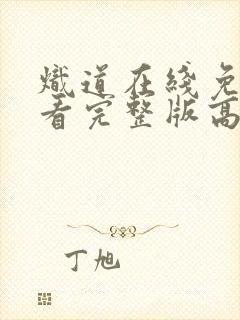 炽道在线免
看完整版高
丁旭